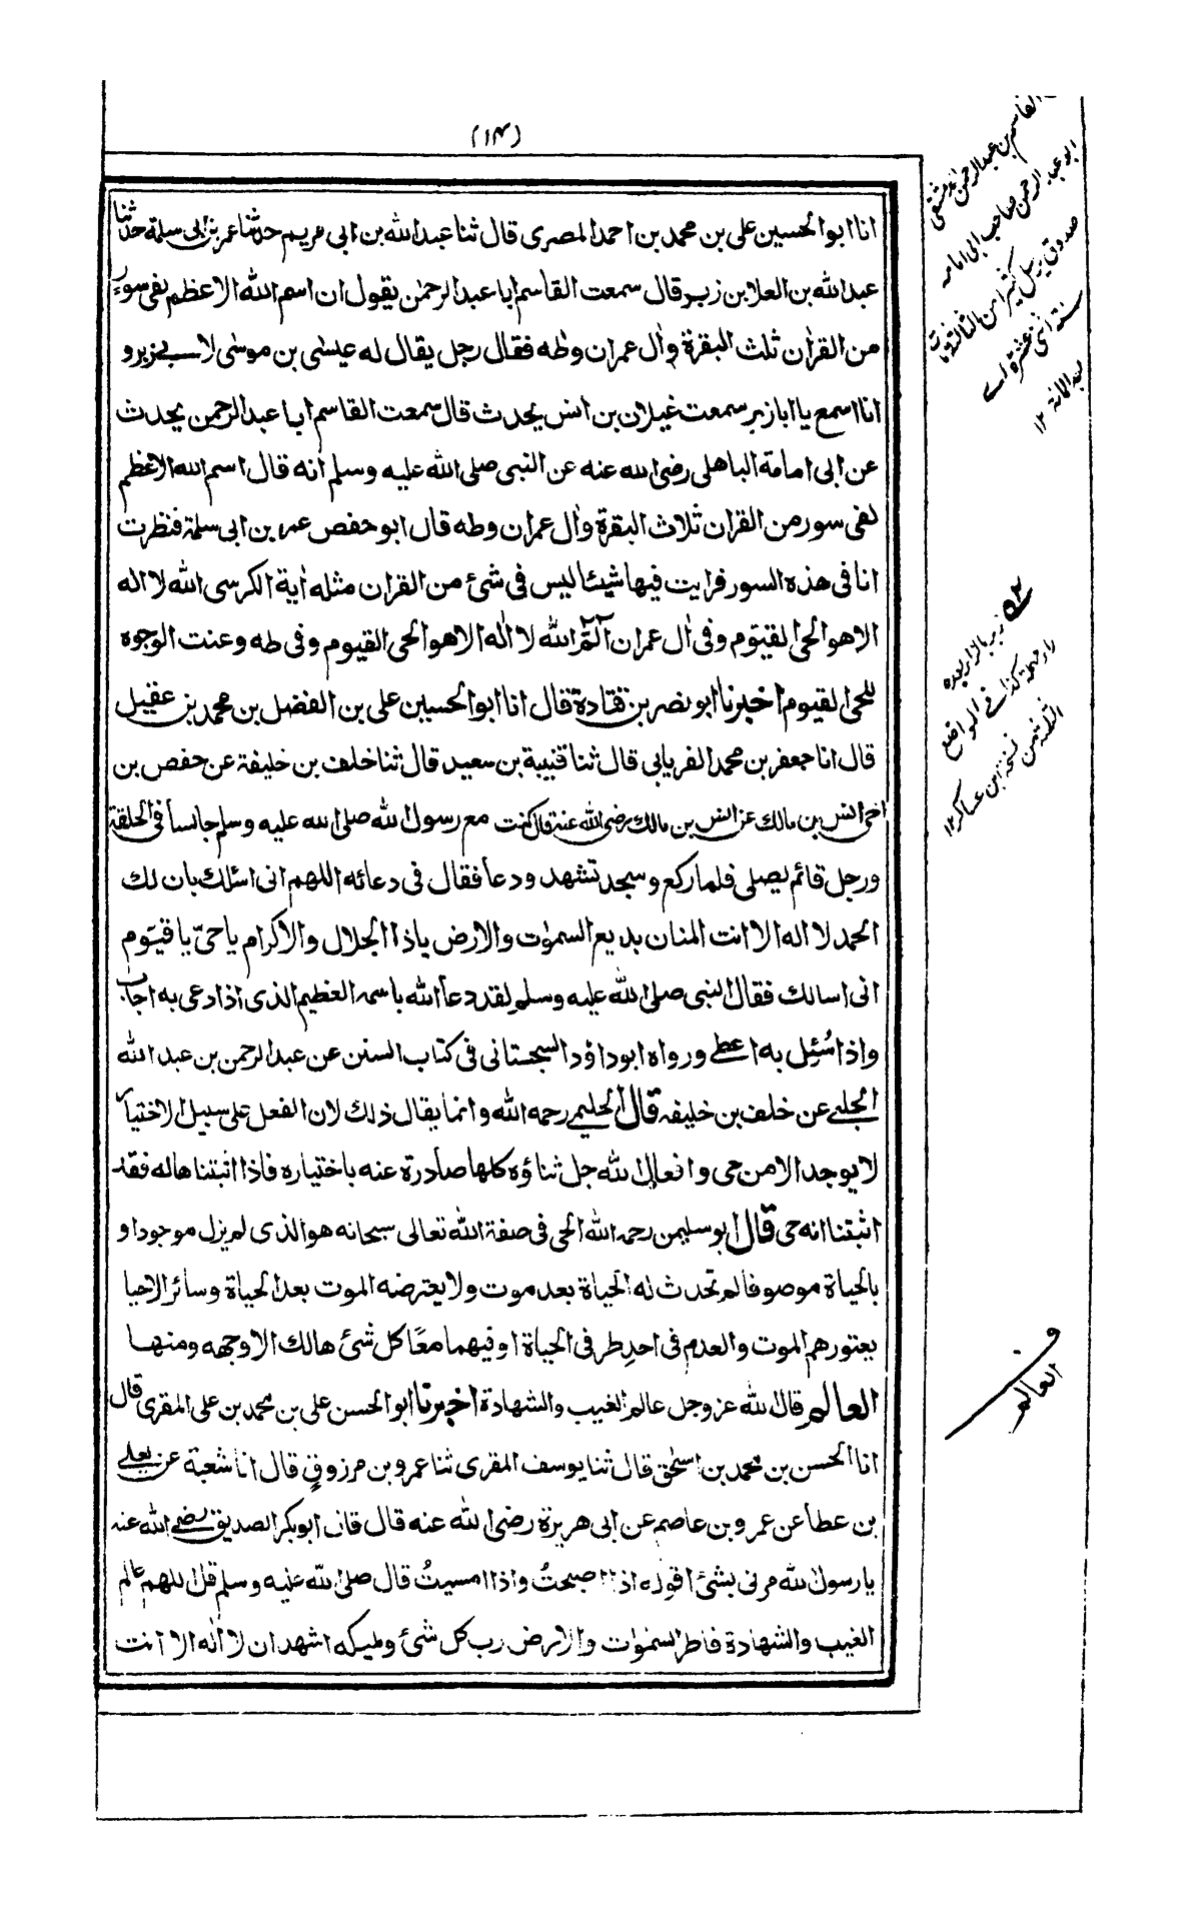 (١٤)
انا ابو الحسين على بن محمد بن احمد المصرى قال ثنا عبد الله بن ابى مريم حدثنا عمر بن ابى سلمة حدثنا
عبد الله بن العلا بن زبر قال سمعت القاسم ابا عبد الرحمٰن يقول ان اسم الله الاعظم لفى سور
من القراٰن ثلث البقرة واٰل عمران وطٰه فقال رجل يقال له عيسٰى بن موسٰى لابى زبر و
انا اسمع يا ابا زبر سمعت غيلان بن انس يحدث قال سمعت القاسم ابا عبد الرحمن يحدث
عن ابى امامة الباهلى رضى الله عنه عن النبى صلى الله عليه وسلم انه قال اسم الله الاعظم
لفى سور من القران ثلاث البقرة واٰل عمران وطه قال ابو حفص عمر بن ابى سلمة فنظرت
انا فى هذه السور فرايت فيها شيئا ليس فى شئ من القران مثله اٰية الكرسى الله لا اله
الا هو الحى القيوم وفى اٰل عمران الٓمّٓ الله لا الٰه الا هو الحى القيوم وفى طه وعنت الوجوه
للحى القيوم اخبرنا ابو نصر بن قتادة قال انا ابو الحسين على بن الفضل بن محمد بن عقيل
قال انا جعفر بن محمد الفريابى قال ثنا قتيبة بن سعيد قال ثنا خلف بن خليفة عن حفص بن
اخى انس بن مالك عن انس بن مالك رضى الله عنه قال كنت مع رسول الله صلى الله عليه وسلم جالسا فى الحلقة
ورجل قائم يصلى فلما ركع وسجد تشهد ودعا فقال فى دعائه اللهم انى اسئلك بان لك
الحمد لا اله الا انت المنان بديع السمٰوٰت والارض ياذا الجلال والاكرام يا حىّ يا قيّوم
انى اسالك فقال النبى صلى الله عليه وسلم لقد دعا الله باسمه العظيم الذى اذا دعى به اجاب
واذا سُئِل به اعطى ورواه ابو داؤد السجستانى فى كتاب السنن عن عبد الرحمن بن عبد الله
الحلبى عن خلف بن خليفه قال الحليمى رحمه الله وانما يقال ذلك لان الفعل على سبيل الاختيار
لا يوجد الا من حى وافعال الله جل ثناؤه كلها صادرة عنه باختياره فاذا اثبتناها له فقد
اثبتنا انه حى قال ابو سليمن رحمه الله الحى فى صفة الله تعالى سبحانه هو الذى لم يزل موجودا و
بالحياة موصوفا لم تحدث له الحياة بعد موت ولا يعترضه الموت بعد الحياة وسائر الاحيا
يعتورهم الموت والعدم فى احد طرفى الحياة او فيهما معًا كل شئ هالك الا وجهه ومنها
العالم قال الله عز وجل عالم الغيب والشهادة اخبرنا ابو الحسن على بن محمد بن على المقرى قال
انا الحسن بن محمد بن اسحٰق قال ثنا يوسف المقرى ثنا عمرو بن مرزوق قال انا شعبة عن يعلى
بن عطا عن عمرو بن عاصم عن ابى هريرة رضى الله عنه قال قال ابو بكر الصديق رضى الله عنه
يا رسول الله مرنى بشئ اقوله اذا اصبحتُ واذا امسيتُ قال صلى الله عليه وسلم قل اللهم عالم
الغيب والشهادة فاطر السمٰوات والارض رب كل شئ ومليكه اشهد ان لا الٰه الا انت
القاسم بن عبد الرحمن الدمشقى
ابو عبد الرحمن صاحب ابى امامه
صدوق يرسل كثيرا من الثالثة مات
سنة اثنى عشرة اے
بعد المائة ١٢
زبر بالزا وبعده
راء مهملة كذا فى المواضع
الثلثة من نسخة ابن عساكر ١٢
ف
العالم